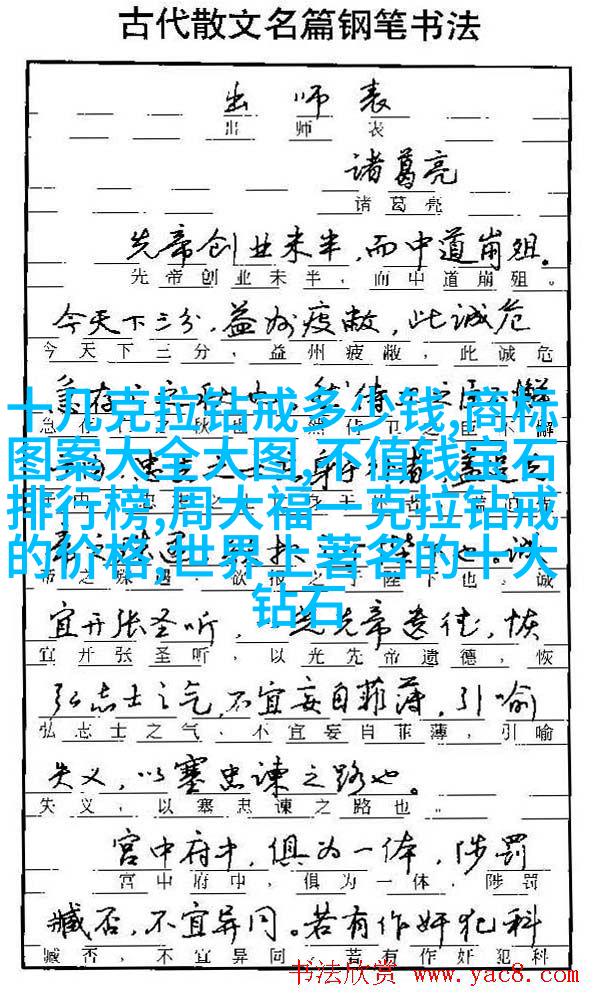 古代散文名篇钢笔书法
出师表
出师表
诸葛亮
诸葛亮
先帝创业未半,而中道崩殂。
先帝创业未半,而中道崩殂。
今天下三分,益州疲敝,此诚危
今天下三分,益州疲敝,此诚危
十几克拉钻戒多少钱,商标
图案大全大图,不值钱宝石
排行榜,周大福一克拉钻戒
的价格,世界上著名的十大
钻石
宜开张圣听,光先帝遗德,恢
宜开张圣听,以光先帝遗德,恢
弘志士之气,不宜妄自菲薄,引喻
弘志士之气,不宜妄自菲薄,引喻
失义,以塞忠谏之路也。
失义,以塞忠谏之路也。
宫中府中,俱为一体,陟罚
宫中府中,俱为一体,陟罚
臧否,不宜异同。若有作奸犯科
臧否,不宜异同。若有作奸犯科
书法欣赏 www.yac8.com